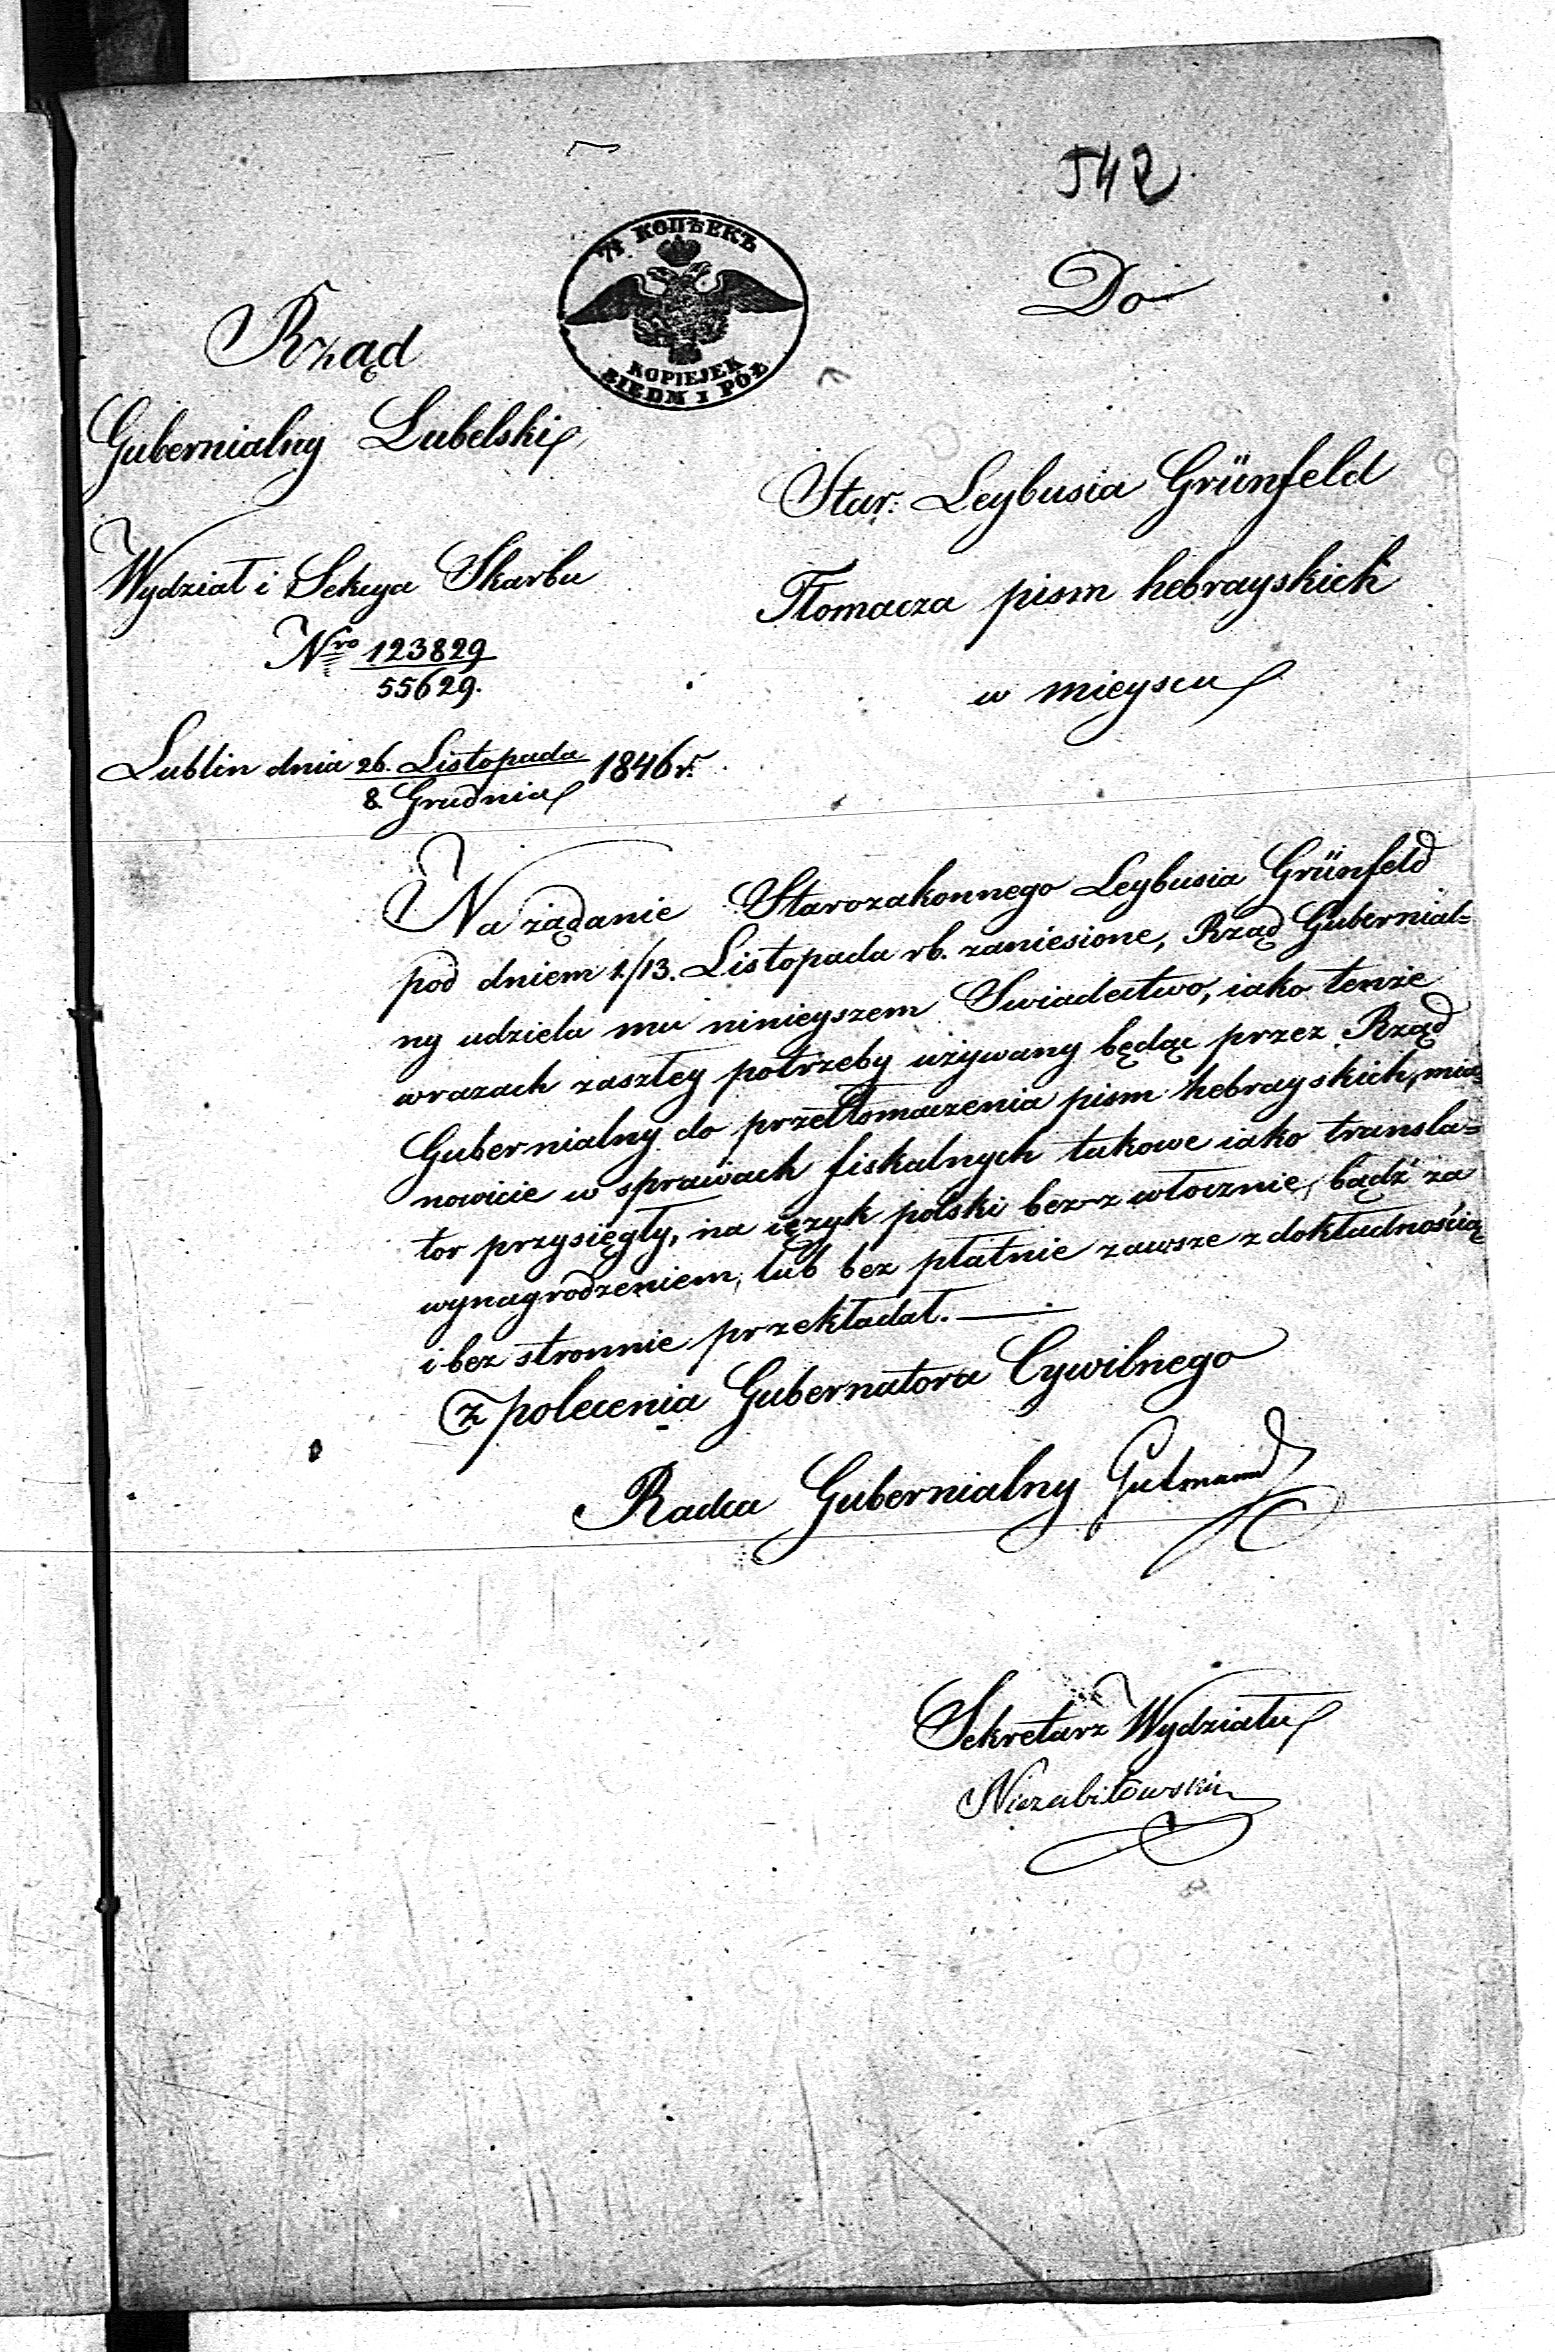 542.
7½ КОПѢЕКЪ
KOPIEJEK
SIEDM I PÓŁ
Rząd
Gubernialny Lubelski
Wydział i Sekcya Skarbu
Nro 123829
55629.
Lublin dnia 26. Listopada 1846 r.
8. Grudnia
Do
Star: Leybusia Grünfeld
Tłomacza pism hebrayskich
w mieyscu
Na żądanie Starozakonnego Leybusia Grünfeld
pod dniem 1./13. Listopada rb. zaniesione, Rząd Gubernial=
ny udziela mu ninieyszem Swiadectwo, iako tenże
w razach zaszłey potrzeby używany będąc przez Rząd
Gubernialny do przetłomaczenia pism hebrayskich, mia=
nowicie w sprawach fiskalnych takowe iako transla=
tor przysięgły, na ięzyk polski bezzwłocznie, bądź za
wynagrodzeniem, lub bez płatnie zawsze z dokładnością
i bez stronnie przekładał.
z polecenia Gubernatora Cywilnego
Radca Gubernialny Gutmann
Sekretarz Wydziału
Niezabitowski